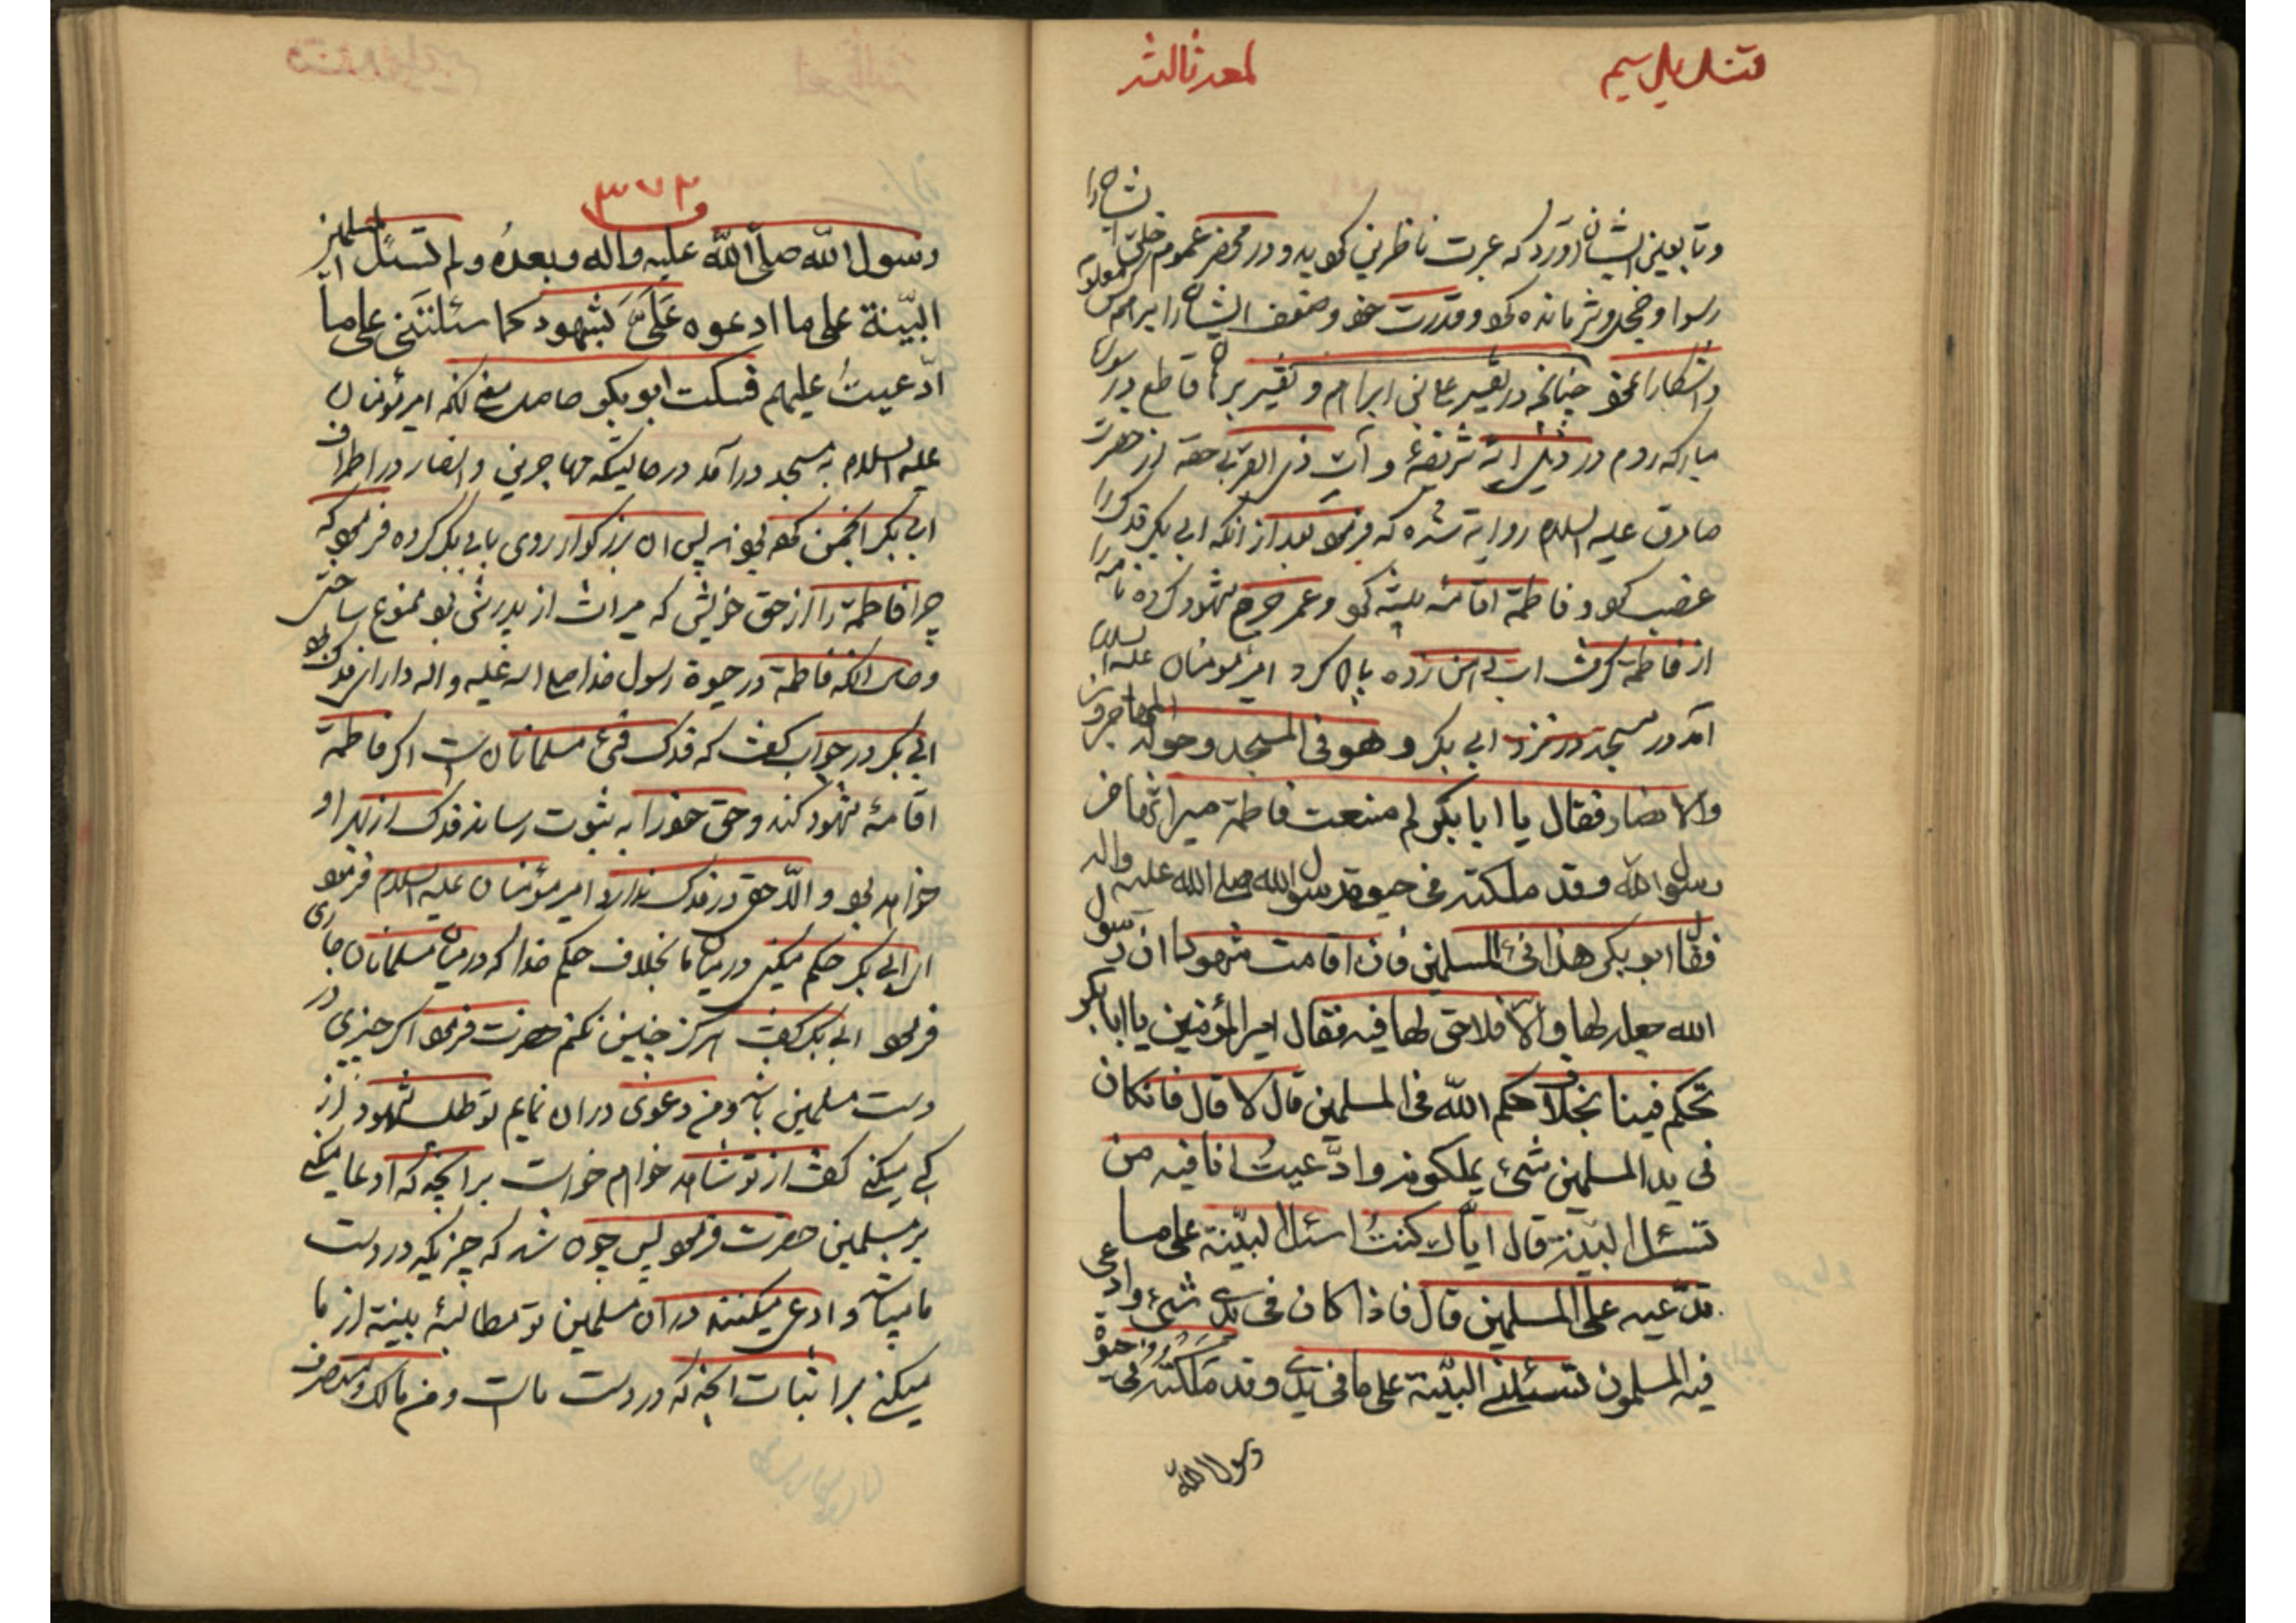 لمعه ثالثه
و تابعین ایشان آورد که عبرت ناظرین کوید و در محضر عموم خلق ایشانرا
رسوا و خجل و شرمانده کو و قدرت خو و ضعف ایشانرا بر همه کس معلوم
و اشکارا نمو چنانچه در تفسیر ابرام و تفسیر برهان قاطع در سوره
مبارکه روم در ذیل ایه شریفهٔ و آت ذی القربی حقه از حضرت
صادق علیه السلام روایة شده که فرمو بعد از انکه ابی بکر فدک را
غصب کو و فاطمة اقامهٔ بینه کو و عمر جرح شهود کرده نامه را
از فاطمة کرفت اب دهن زده پاک کرد امیر مؤمنان علیه السلام
آمد در مسجد در نزد ابی بکر و هو فی المسجد و حوله المهاجرون
والانصار فقال یا ابا بکر لم منعت فاطمة میراثها من
رسول الله وقد ملکته فی حیوة رسول الله صلی الله علیه واله
فقال ابو بکر هذا فیء المسلمین فان اقامت شهودا ان رسول
الله جعله لها والا فلا حق لها فیه فقال امیر المؤمنین یا ابا بکر
تحکم فینا بخلاف حکم الله فی المسلمین قال لا قال فان کان
فی ید المسلمین شیء یملکونه وادّعیتُ انا فیه من
تسئل البیّنة قال ایّاک کنتُ اسئل البیّنة علی ما
تدّعیه علی المسلمین قال فاذا کان فی یدی شیء وادعی
فیه المسلمون تسئلنی البیّنة علی ما فی یدی وقد ملکته فی حیوة
رسول الله
٣٧٢
رسول الله صلّی الله علیه واله وبعدهُ ولم تسئل المسلمین
البیّنة علی ما ادعوه عَلَیَّ بشهود کما سئلتنی علی ما
ادّعیتُ علیهم فسکت ابو بکر حاصل معنی انکه امیر مؤمنان
علیه السلام به مسجد درآمد در حالیتکه مهاجرین و انصار در اطراف
ابی بکر انجمن کو بودند پس ان بزرکوار روی بابی بکر کرده فرمو که
چرا فاطمة را از حق خویش که میراث از پدرش بو ممنوع ساختی
و حال انکه فاطمة در حیوة رسول خدا صلی الله علیه و اله دارای فدک بو
ابی بکر در جواب کفت که فدک فیء مسلمانان است اکر فاطمة
اقامهٔ شهود کند و حق خو را به ثبوت رساند فدک از برای او
خواهد بو و الّا حق در فدک ندارد امیر مؤمنان علیه السلام فرمو
ای ابی بکر حکم میکنی در میان ما بخلاف حکم خدا که در میان مسلمانان جاری
فرمو ابی بکر کفت هرکز چنین نکنم حضرت فرمو اکر چیزی در
دست مسلمین باشد و من دعوی دران نمایم تو طلب شهود از
کی میکنی کفت از تو شاهد خواهم خواست بر انچه که ادعا میکنی
بر مسلمین حضرت فرمو پس چون شد که چیزیکه در دست
ما میباشد و ادعی میکنند دران مسلمین تو مطالبهٔ بینة از ما
میکنی بر اثبات انچه که در دست ماست و من مالک و متصرف